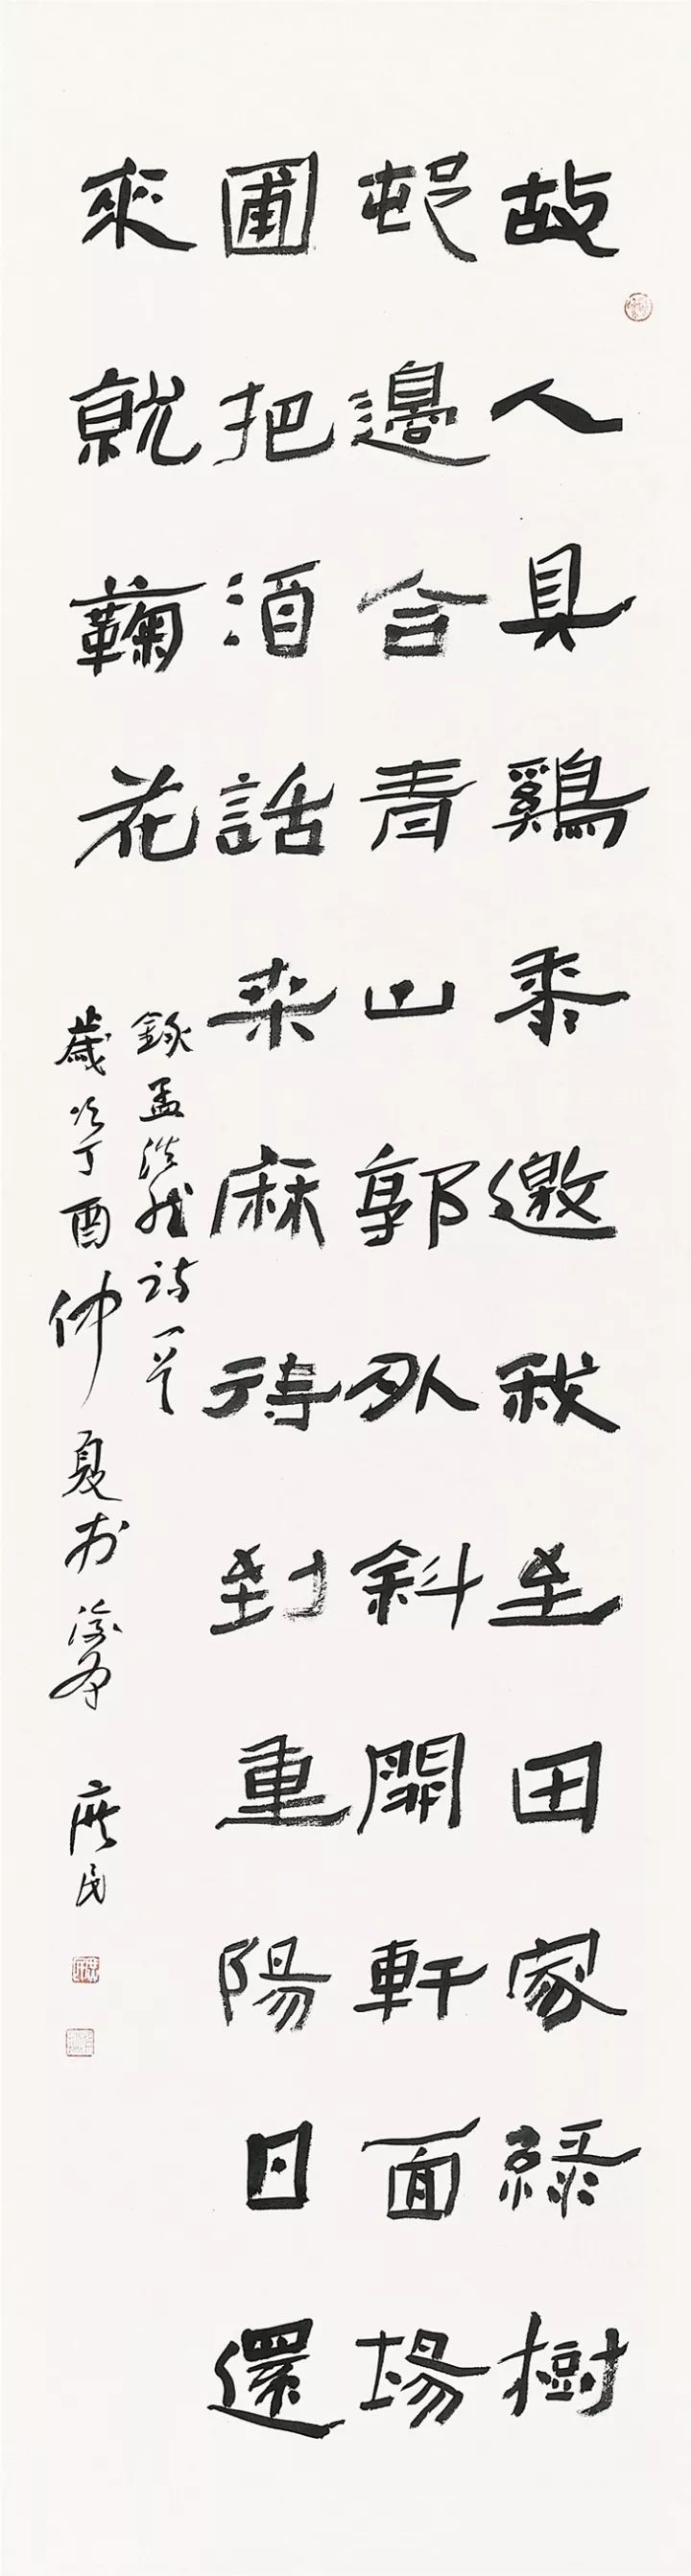 故人具鷄黍邀我至田家綠樹
邨邊合青山郭外斜開軒面場
圃把酒話桒麻待到重陽日還
來就鞠花
錄孟浩然詩一首
歲次丁酉仲夏於
庶民